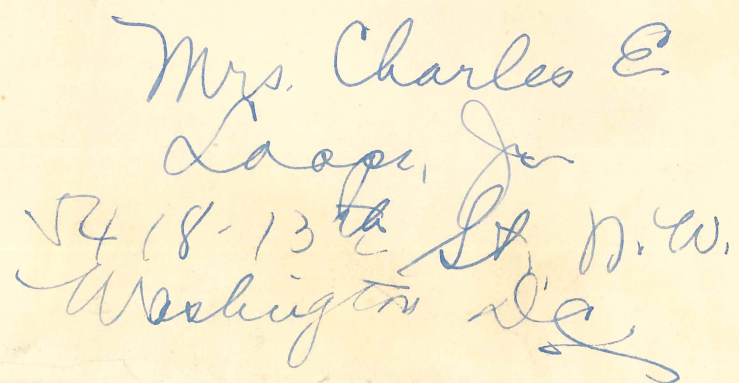 Mrs. Charles E
Loope, Jr
5418-13th St, N.W.
Washington D.C.